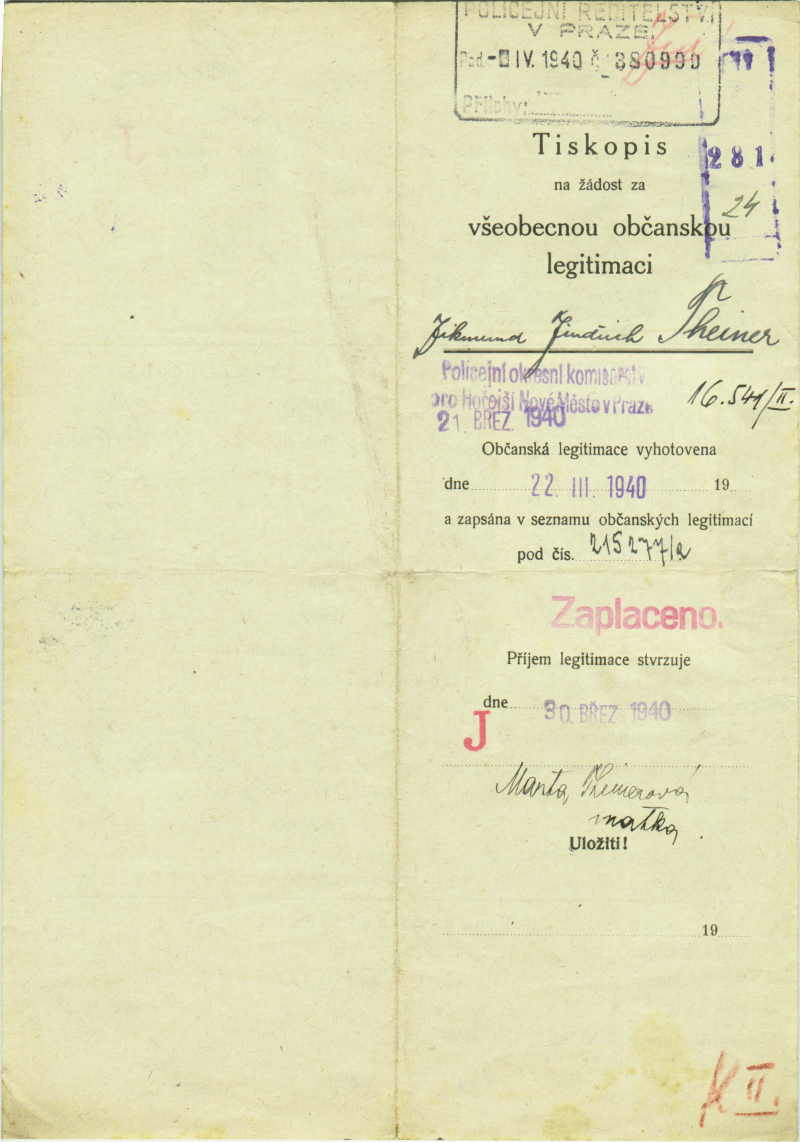 POLICEJNÍ ŘEDITELSTVÍ
V PRAZE.
Pod. IV. 1940 č. 390990
Přílohy:
281
24
Tiskopis
na žádost za
všeobecnou občanskou
legitimaci
Zikmund Jindřich Theiner
Policejní okresní komisařství
pro Hořejší Nové Město v Praze
21. BŘEZ. 1940
16.541/II.
Občanská legitimace vyhotovena
dne 22. III. 1940 19
a zapsána v seznamu občanských legitimací
pod čís. 215277/2
Zaplaceno.
Příjem legitimace stvrzuje
dne 30. BŘEZ. 1940
J
Marta Theinerová
matka
Uložiti!
19
II.